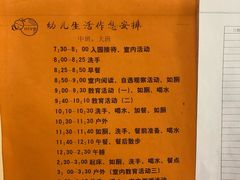 幼儿生活作息安排
中班、大班
7,30-8,00 入园接待、室内活动
8.00-8.25 洗手
8.25-8.50 早餐
8.50-9.00 室内阅读、自选观察活动、如厕
9.00-9.40 教育活动（一）、如厕、喝水
9.40-10.10 教育活动（二）
10.10-10.30 洗手、喝水、加餐、如厕
10.30-11.10 户外
11.10-11.40 如厕、洗手、餐前准备、喝水
11.40-12.10 午餐、餐后散步
12.30-2.30 午睡
2.30-3.00 起床、如厕、洗手、喝水、餐点
3.00-3.30 户外（室内教育活动三）